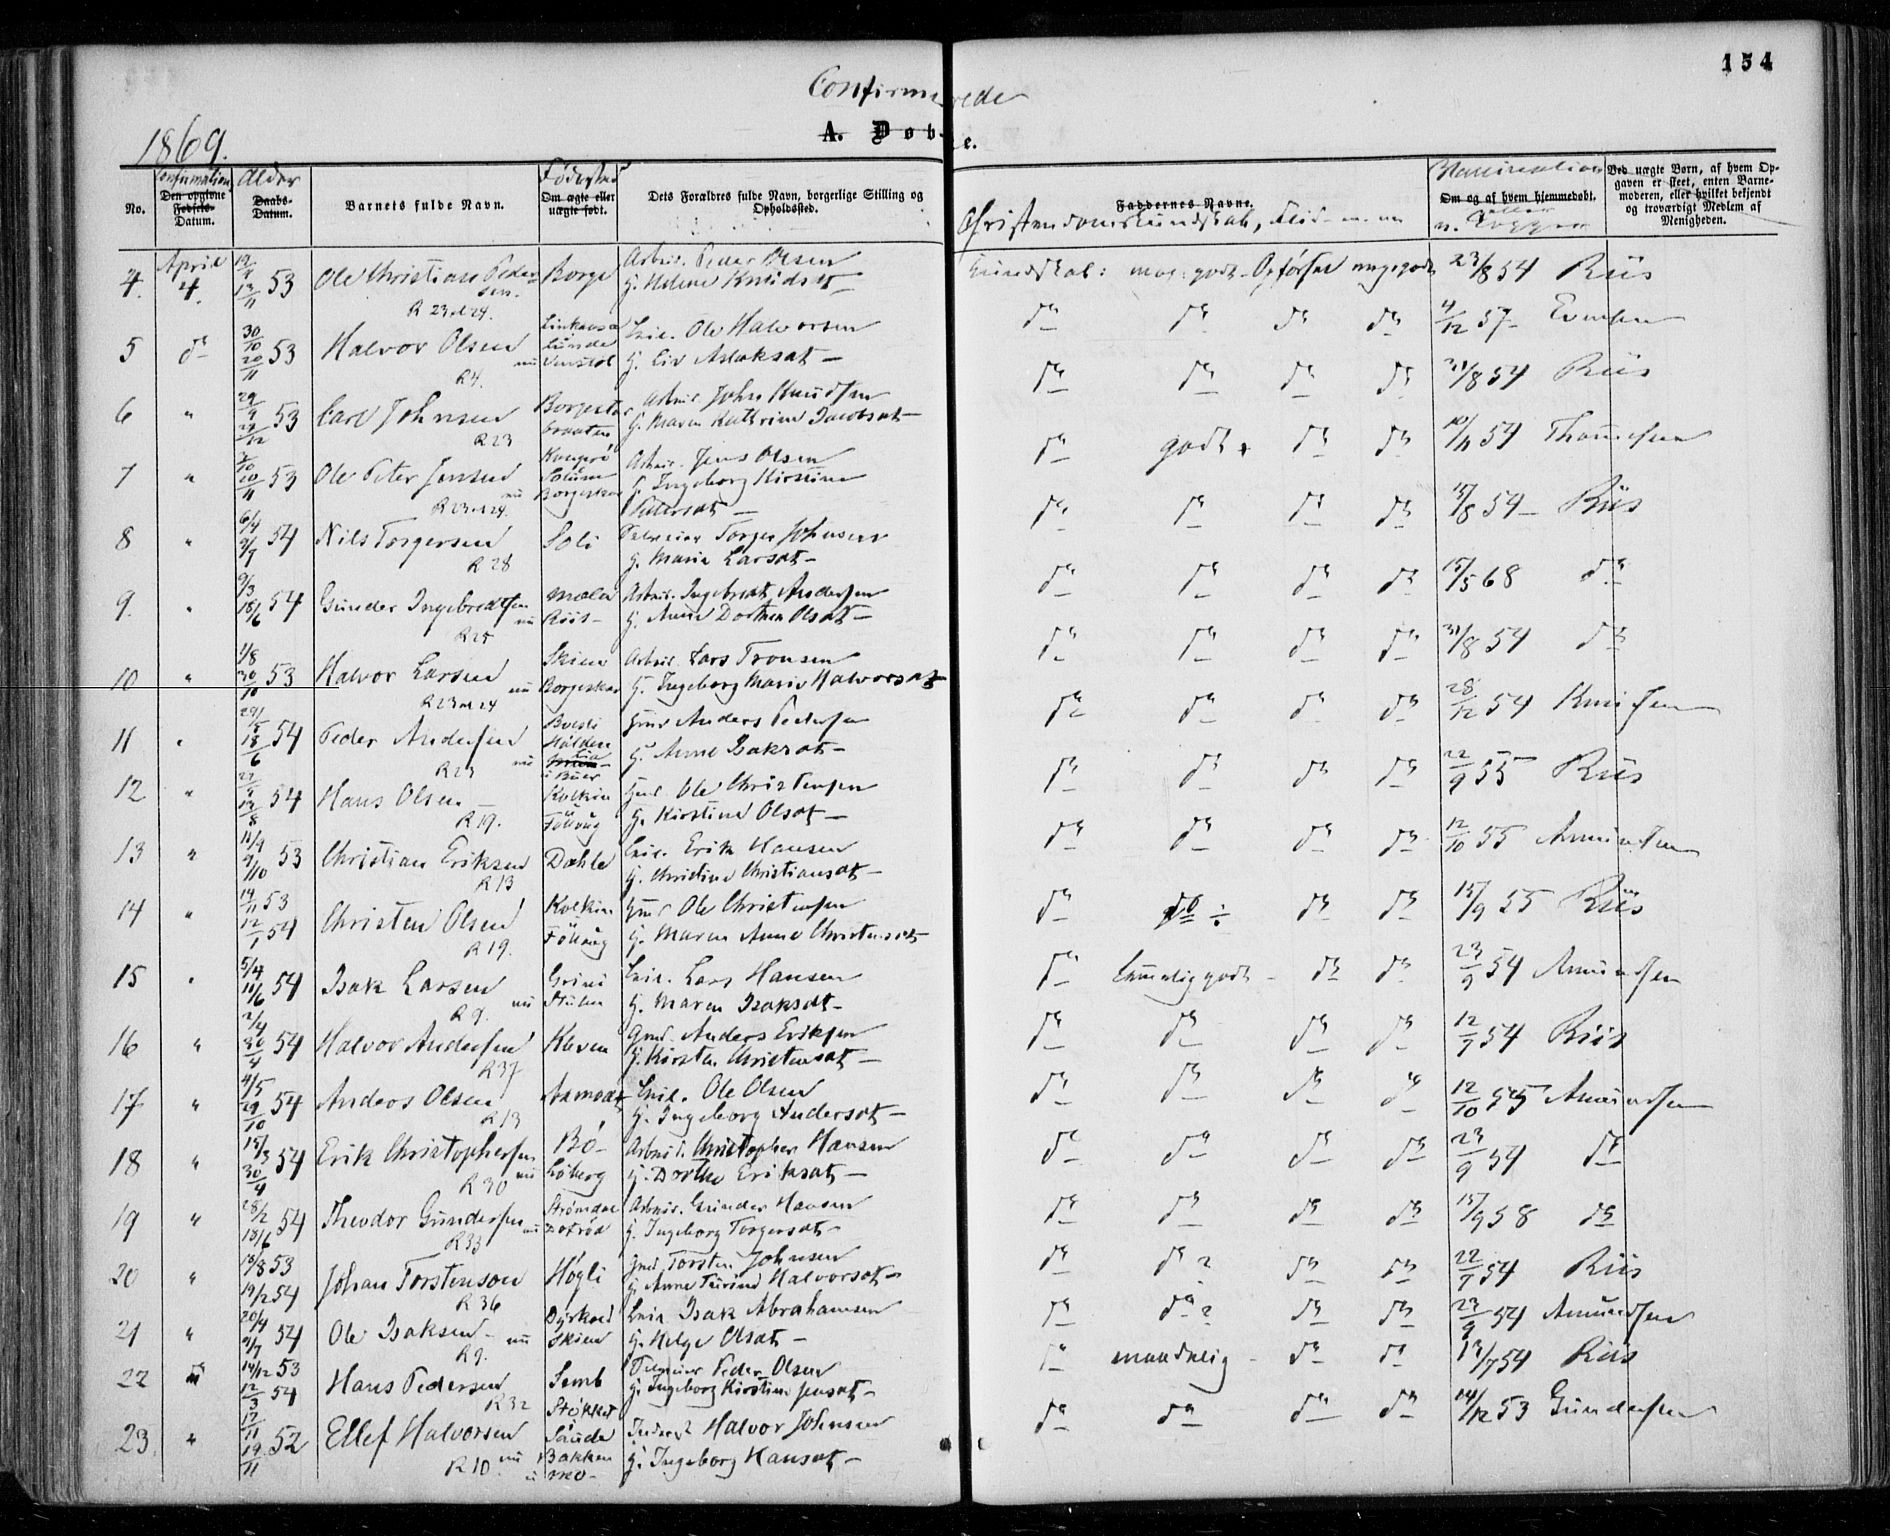 154
Confirmerede
A. Døbte.
1869.
No.
Confirmations
Den opgivne Fødsels-Datum.
Alder
Daabs-Datum.
Barnets fulde Navn.
Fødested
Om ægte eller uægte født.
Dets Forældres fulde Navn, borgerlige Stilling og Opholdssted.
Faddernes Navne.
Christendomskundskab, Flid
Vaccination
Om og af hvem hjemmedøbt.
Ved uægte Børn, af hvem Opgaven er skeet, enten Barnemoderen, eller hvilket bekjendt og troværdigt Medlem af Menigheden.
4. April 4. 53 Ole Christian Pedersen Borge Arbeid. Peder Olsen
G. Helene Knudsdt Kundskab: meg: godt - Opførsel megegodt 23/8 54 Riis
R 23
5 do 30/10 20/11 53 Halvor Olsen nu Venstøl Inds. Ole Halvorsen
G. Liv Aslaksdt - do do do do 4/12 57 Evensen
R 4.
6 " 29/9 29/12 53 Carl Johnsen Borgestad braaten Arbeid. John Knudsen
G. Maren Kathrine Jacobsdt - do do do do 31/8 54 Riis
R 23
7 " 10/11 53 Ole Peter Jensen Solum nu Borgeskar Arbeid. Jens Olsen
G. Ingeborg Kirstine Petersdt - do godt + do do 54 Thommesen
8 " 6/4 9/7 54 Nils Torgersen Soli Torger Johnsen
G. Maria Larsdt - do do do do 15/8 54 - Riis
R 28
9. " 9/3 18/6 54 Gunder Ingebredtsen Mæla nu Riis - Arbeid. Ingebredt Andersen
G. Anne Dorthea Olsdt - do do do do 15/5 68 do
R 25
10 " 1/8 30/10 53 Halvor Larsen Skien nu Borgeskar Arbeid. Lars Tronsen
G. Ingeborg Marie Halvorsdt do do do do 31/8 54 do
11 " 29/5 18/6 54 Peder Andersen nu Lia i Buer Gmd Anders Pedersen
G. Anne Isaksdt - do do do do 28/12 54 Knudsen
R 23
12 " 13/8 54 Hans Olsen - Kolkin Follaug Gmd. Ole Christensen
G. Kirstine Olsdt - do do do do 22/9 55 Riis
R 19.
13 " 11/9 9/10 53 Christian Eriksen Dahle Inds. Erik Hansen
G. Christine Christiansdt - do do do do 12/10 55 Amundsen
R 13
14 " 14/11 53 12/1 54 Christen Olsen Kolkin Follaug Gmd Ole Christensen
G. Maren Anne Christensdt - do do ÷ do do 15/9 55 Riis
R 19.
15 " 5/4 11/6 54 Isak Larsen Grini nu Stulen Inds. Lars Hansen
G. Maren Isaksdt - do temmelig godt - do do 23/9 54 Amundsen
R 9.
16 " 2/4 30/4 54 Halvor Andersen Kleven Gmd. Anders Eriksen
G. Kirsten Christensdt - do do do do 12/7 54 Riis
R 37
17 " 4/5 29/10 54 Anders Olsen Aamodt Inds. Ole Olsen
G. Ingeborg Andersdt - do do do do 12/10 55 Amundsen
R 13
18 " 15/3 30/4 54 Erik Christophersen Bö - nu Löberg Arbeid. Christopher Hansen
G. Dorthe Eriksdt - do do do do 23/9 54 do
R 30
19 " 28/2 18/6 54 Theodor Gundersen Strömdal nu Arbeid. Gunder Hansen
G. Ingeborg Torgersdt - do do do do 15/9 58 do
R 33
20 " 53 19/2 54 Johan Torstenson Högli Gmd. Torsten Johnsen
G. Anne Turine Halvorsdt - do do ? do do 22/7 54 Riis
R 36
21 " 20/4 9/7 54 Ole Isaksen - nu Skien Inds. Isak Abrahamsen
G. Helge Olsdt - do do ? do do 23/9 54 Amundsen
R 9.
22 do 14/12 53 12/3 54 Hans Pedersen Semb Peder Olsen
G. Ingeborg Kirstine Jensdt - do maadelig - do do 13/7 54 Riis
R 32
23. " 17/11 19/11 52 Ellef Halvorsen Saude nu Bakken i Mo - Halvor Johnsen
G. Ingeborg Hansdt - do do do do 14/12 53 Gundersen
R 10